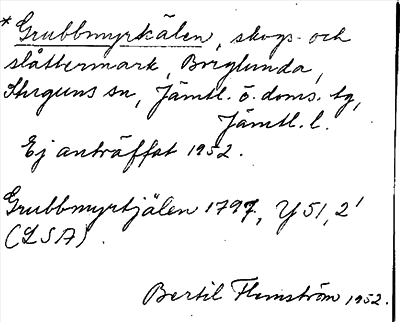 * Grubbmyrkälen, skogs- och
slåttermark, Borglunda,
Stuguns sn, Jämtl. ö. doms. tg,
Jämtl. l.
Ej anträffat 1952.
Grubbmyrtjälen 1797, Y51, 2'
(LSA).
Bertil Flemström 1952.